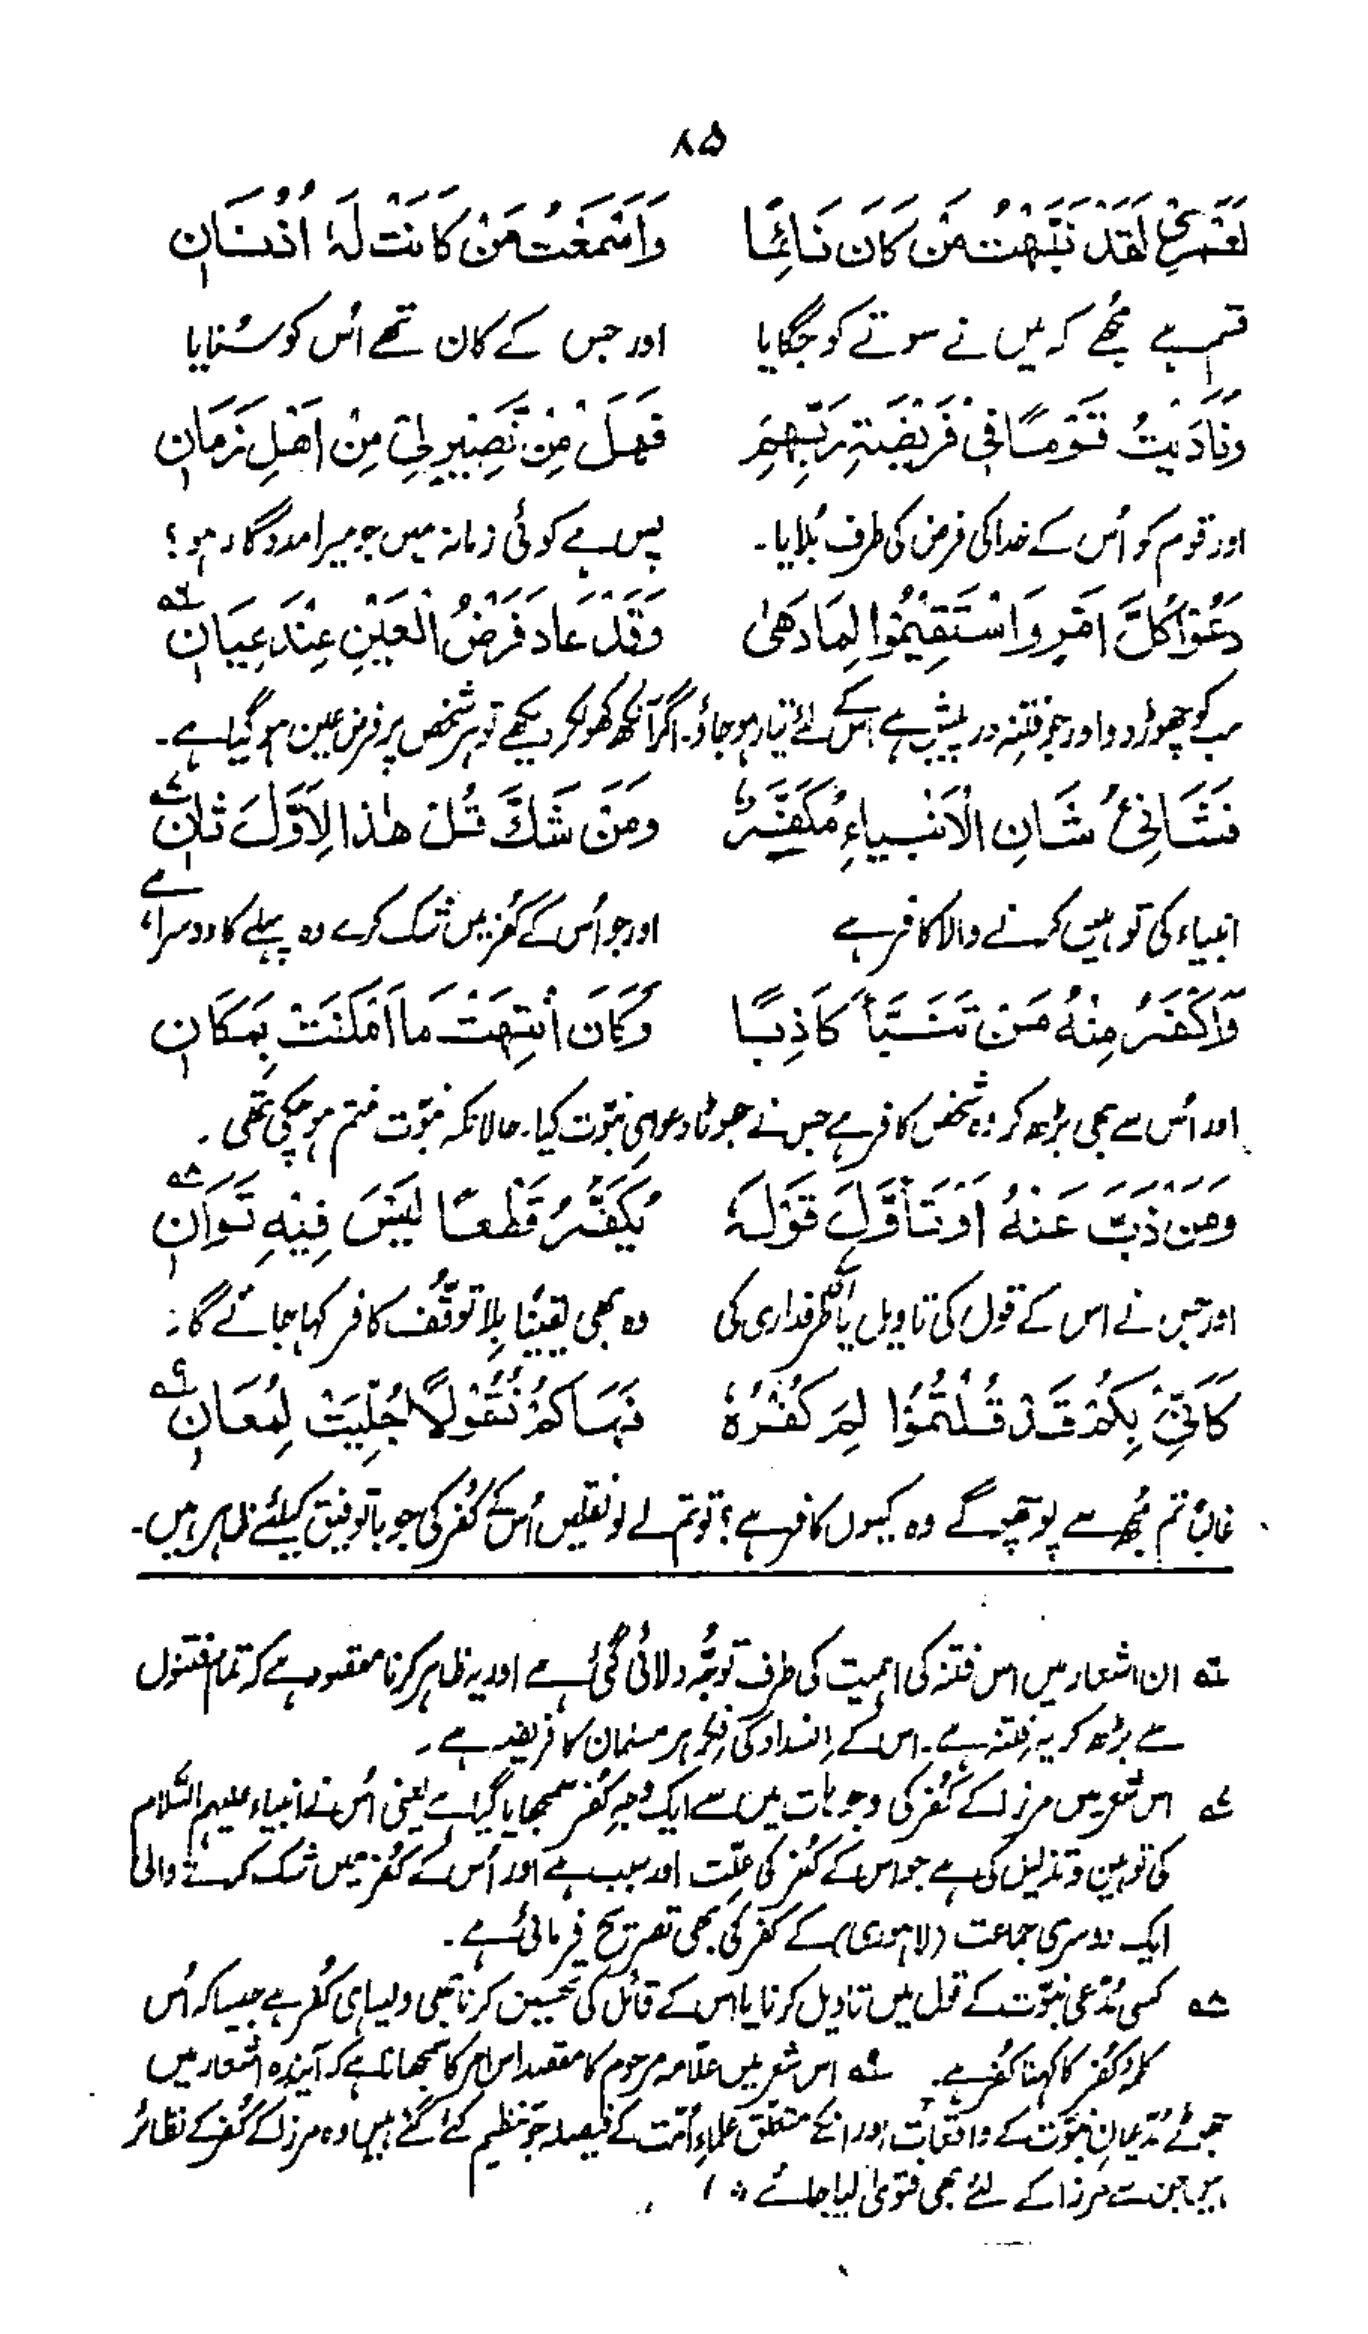 ۸۵
لَعَمْرِیْ لَقَدْ نَبَّهْتُ مَنْ کَانَ نَائِمًا وَاَسْمَعْتُ مَنْ کَانَتْ لَہٗ اُذُنَانِ
قسم ہے مجھے کہ میں نے سوتے کو جگایا اور جس کے کان تھے اُس کو سُنایا
وَنَادَیْتُ قَوْمًا فِیْ فَرِیْضَۃِ رَبِّھِمْ فَھَلْ مِنْ نَّصِیْرٍ لِیْ مِنْ اَھْلِ زَمَانِ
اور قوم کو اُس کے خدا کی فرض کی طرف بُلایا۔ پس ہے کوئی زمانہ میں جو میرا مددگار ہو؟
دَعُوْا کُلَّ اَمْرٍ وَاسْتَقِیْمُوْا لِمَا دَھٰی وَقَدْ عَادَ فَرْضُ الْعَیْنِ عِنْدَ عِیَانِ ۶؎
سب کو چھوڑ دو اور جو فتنہ درپیش ہے اس کے لئے تیار ہو جاؤ۔ اگر آنکھ کھولکر دیکھے تو ہر شخص پر فرض عین ہو گیا ہے۔
فَشَانِئُ شَانِ الْاَنْبِیَاءِ مُکَفَّرٌ وَمَنْ شَکَّ قُلْ ھٰذَا لِاَوَّلَ ثَانِ ۷؎
انبیاء کی توہین کرنے والا کافر ہے اور جو اُس کے کُفر میں شک کرے وہ پہلے کا دوسرا ہے
وَاَکْفَرُ مِنْہُ مَنْ تَنَبَّأَ کَاذِبًا وَکَانَ انْتَھَتْ مَا اَمْکَنَتْ بِمَکَانِ
اور اُس سے بھی بڑھ کر وہ شخص کافر ہے جس نے جھوٹا دعوایِ نبوّت کیا۔ حالانکہ نبوّت ختم ہو چکی تھی۔
وَمَنْ ذَبَّ عَنْہُ اَوْ تَأَوَّلَ قَوْلَہٗ یُکَفَّرُ قَطْعًا لَیْسَ فِیْہِ تَوَانِ ۸؎
اور جس نے اس کے قول کی تاویل یا اُسکی طرفداری کی وہ بھی یقینًا بلا توقُّف کافر کہا جائے گا۔
کَاَنِّیْ بِکُمْ قَدْ قُلْتُمُوْا لِمَ کُفْرُہٗ فَھَاکُمْ نُقُوْلًا جُلِّیَتْ لِمُعَانِ ۹؎
غالبًا تم مُجھ سے پوچھو گے وہ کیوں کافر ہے؟ تو تم لے لو نقلیں اُس کے کُفر کی جو باتوفیق کیلئے ظاہر ہیں۔
۶؎ ان اشعار میں اس فتنہ کی اہمیت کی طرف توجُّہ دلائی گئی ہے اور یہ ظاہر کرنا مقصود ہے کہ تمام فتنوں
سے بڑھ کر یہ فِتنہ ہے۔ اس کے اِنسداد کی فِکر ہر مسلمان کا فریضہ ہے۔
۷؎ اس شعر میں مرزا کے کُفر کی وجوہات میں سے ایک وجہِ کُفر سمجھایا گیا ہے یعنی اُس نے انبیاء علیہم السَّلام
کی توہین و تذلیل کی ہے جو اس کے کُفر کی علّت اور سبب ہے اور اُس کے کُفر میں شک کرنے والی
ایک دوسری جماعت (لاہوری) کے کفر کی بھی تصریح فرمائی ہے۔
۸؎ کسی مُدّعیِ نبوّت کے قول میں تاویل کرنا یا اس کے قائل کی تحسین کرنا بھی ویسا ہی کُفر ہے جیسا کہ اُس
کا خود کُفر کا کہنا کُفر ہے۔ ۹؎ اس شعر میں علّامہ مرحوم کا مقصد اس امر کا سمجھانا ہے کہ آیندہ اشعار میں
جھوٹے مُدّعیانِ نبوّت کے واقعات اور انکے متعلق علماءِ اُمّت کے فیصلہ جو نظم کئے گئے ہیں وہ مرزا کے کُفر کے نظائر
ہیں جن سے مرزا کے لئے بھی فتویٰ لیا جائے